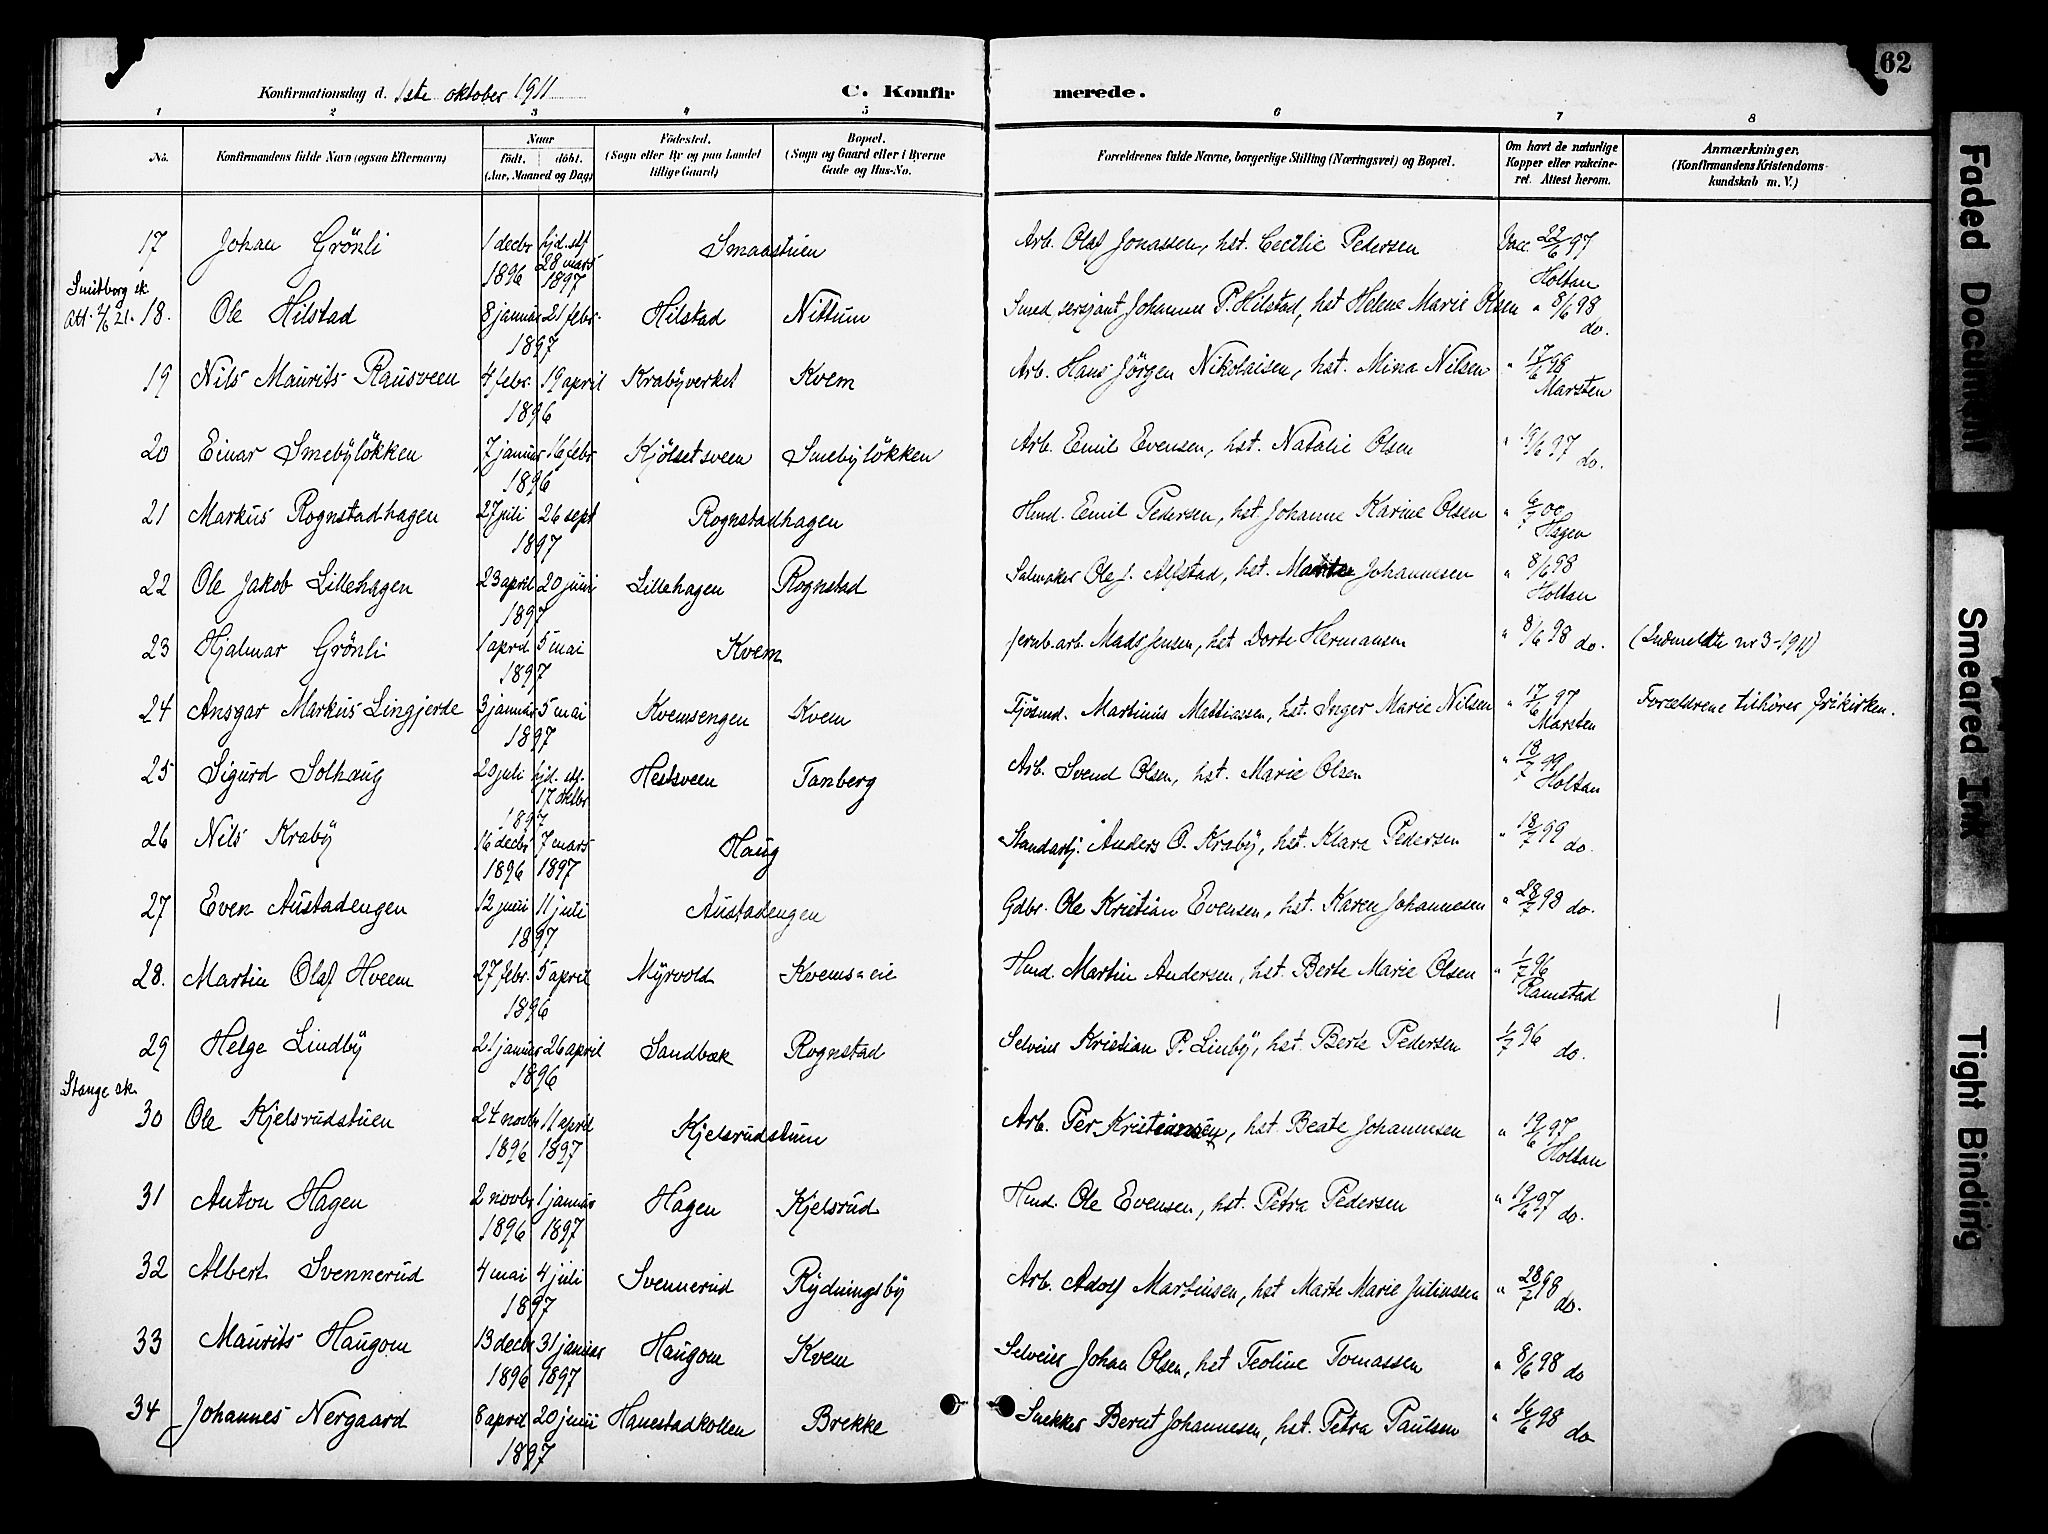 62
Konfirmationsdag d. 1ste oktober 1911
C. Konfirmerede.
1 2 3 4 5 6 7 8
No.
Konfirmandens fulde Navn (ogsaa Efternavn)
Naar
födt. döbt.
(Aar, Maaned og Dag)
Födested.
(Sogn eller By og paa Landet
tillige Gaard)
Bopæl.
(Sogn og Gaard eller i Byerne
Gade og Hus-No.
Forældrenes fulde Navne, borgerlige Stilling (Næringsvei) og Bopæl.
Om havt de naturlige
Kopper eller vakcine-
ret. Attest herom.
Anmærkninger.
(Konfirmandens Kristendoms-
kundskab m. V.)
17 Johan Grönli 1 decbr 1896 hjd. stf. 28 mars 1897 Smaastuen Arb. Olaf Jonassen, hst. Cecilie Pedersen Vacc. 22/6 97 Holtan
Smitborg sk.
18. Ole Hilstad 8 januar 21 febr. 1897 Hilstad Nittum Smed, sersjant Johannes P. Hilstad, hst Helene Marie Olsen " 8/6 98 do.
19 Nils Maurits Rausveen 4 febr. 19 april 1896 Krabyverket Kvem Arb. Hans Jörgen Nikolaisen, hst. Mina Nilsen " 17/6 98 Marsten
20 Einar Smebylökken 7 januar 16 febr 1896 Kjölsetsveen Smebylökken Arb. Emil Evensen, hst. Natalie Olsen " 19/6 97 do.
21 Markus Rognstadhagen 27 juli 26 sept 1897 Rognstadhagen Husd. Emil Pedersen, hst. Johanne Karine Olsen " 6/7 00 Hagen
22 Ole Jakob Lillehagen 23 april 20 juni 1897 Lillehagen Rognstad Salmaker Ole J. Alfstad, hst. Marte Johannesen " 8/6 98 Holtan
23 Hjalmar Grönli 1 april 5 mai 1897 Kvem Jernb.arb. Mads Jensen, hst Dorte Hermansen " 8/6 98 do. (Indmeldte nr 3-1911)
24 Ansgar Markus Lingjerde 3 januar 5 mai 1897 Kvemsengen Kvem Fjösmd. Martinus Mattiassen, hst. Inger Marie Nilsen " 17/6 97 Marsten Forældrene tilhörer frikirken.
25 Sigurd Solhaug 20 juli hjd. stf. 17 oktbr 1897 Hestsveen Tanberg Arb. Svend Olsen, hst. Marie Olsen " 18/7 99 Holtan
26 Nils Kraby 16 decbr 1896 7 mars 1897 Haug "Standartj." Anders O. Kraby, hst. Klara Pedersen " 18/7 99 do.
27 Even Austadengen 12 juni 11 juli 1897 Austadengen Gdbr. Ole Kristian Evensen, hst. Karen Johannesen " 28/7 98 do.
28. Martin Olaf Hveem 27 febr. 5 april 1896 Myrvold Kvems-eie Husd. Martin Andersen, hst. Berte Marie Olsen " 1/7 96 Ramstad
29 Helge Lindby 21 januar 26 april 1896 Sandbæk Rognstad Selveier Kristian P. Linby, hst. Berte Pedersen 1/7 96 do.
Stange sk.
30 Ole Kjelsrudstuen 24 novbr 1896 11 april 1897 Kjelsrudstuen Arb. Per Kristiansen, hst. Beate Johannesen " 19/6 97 Holtan
31 Anton Hagen 2 novbr 1896 1 januar 1897 Hagen Kjelsrud Husd. Ole Evensen, hst. Petra Pedersen " 19/6 97 do.
32 Albert Svennerud 4 mai 4 juli 1897 Svennerud Rydningsby Arb. Adolf Martinsen, hst Marte Marie Juliussen " 28/7 98 do.
33 Maurits Haugom 13 decbr 1896 31 januar 1897 Haugom Kvem Selveier Johan Olsen, hst Teoline Tomassen " 8/6 98 do
34 Johannes Nergaard 8 april 20 juni 1897 Hanestadkollen Brekke Snekker Bernt Johannesen, hst. Petra Paulsen " 14/6 98 do
Faded Document
Smeared Ink
Tight Binding